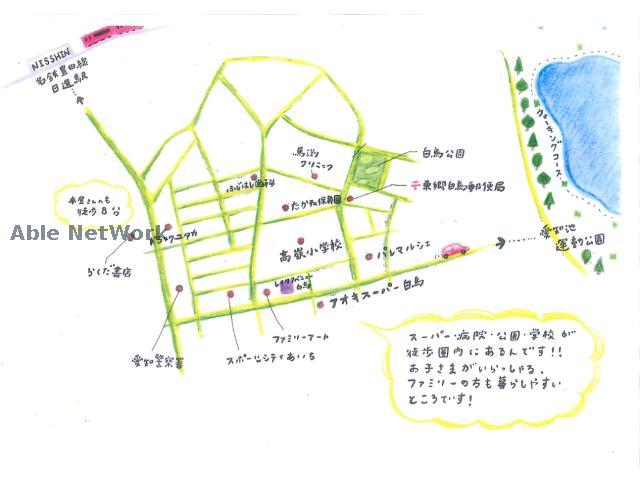 NISSHIN
名鉄豊田線
日進駅
馬渕
クリニック
白鳥公園
〒東郷白鳥郵便局
ウォーキングコース
愛知池
運動公園
本屋さんへも
徒歩8分
ドラッグユタカ
らくだ書店
たかね保育園
高嶺小学校
パレマルシェ
白鳥
アオキスーパー白鳥
ファミリーマート
スポーツシティあいち
愛知警察署
Able NetWork
スーパー・病院・公園・学校が
徒歩圏内にあるんです!!
お子さまがいらっしゃる、
ファミリーの方も暮らしやすい
ところです!